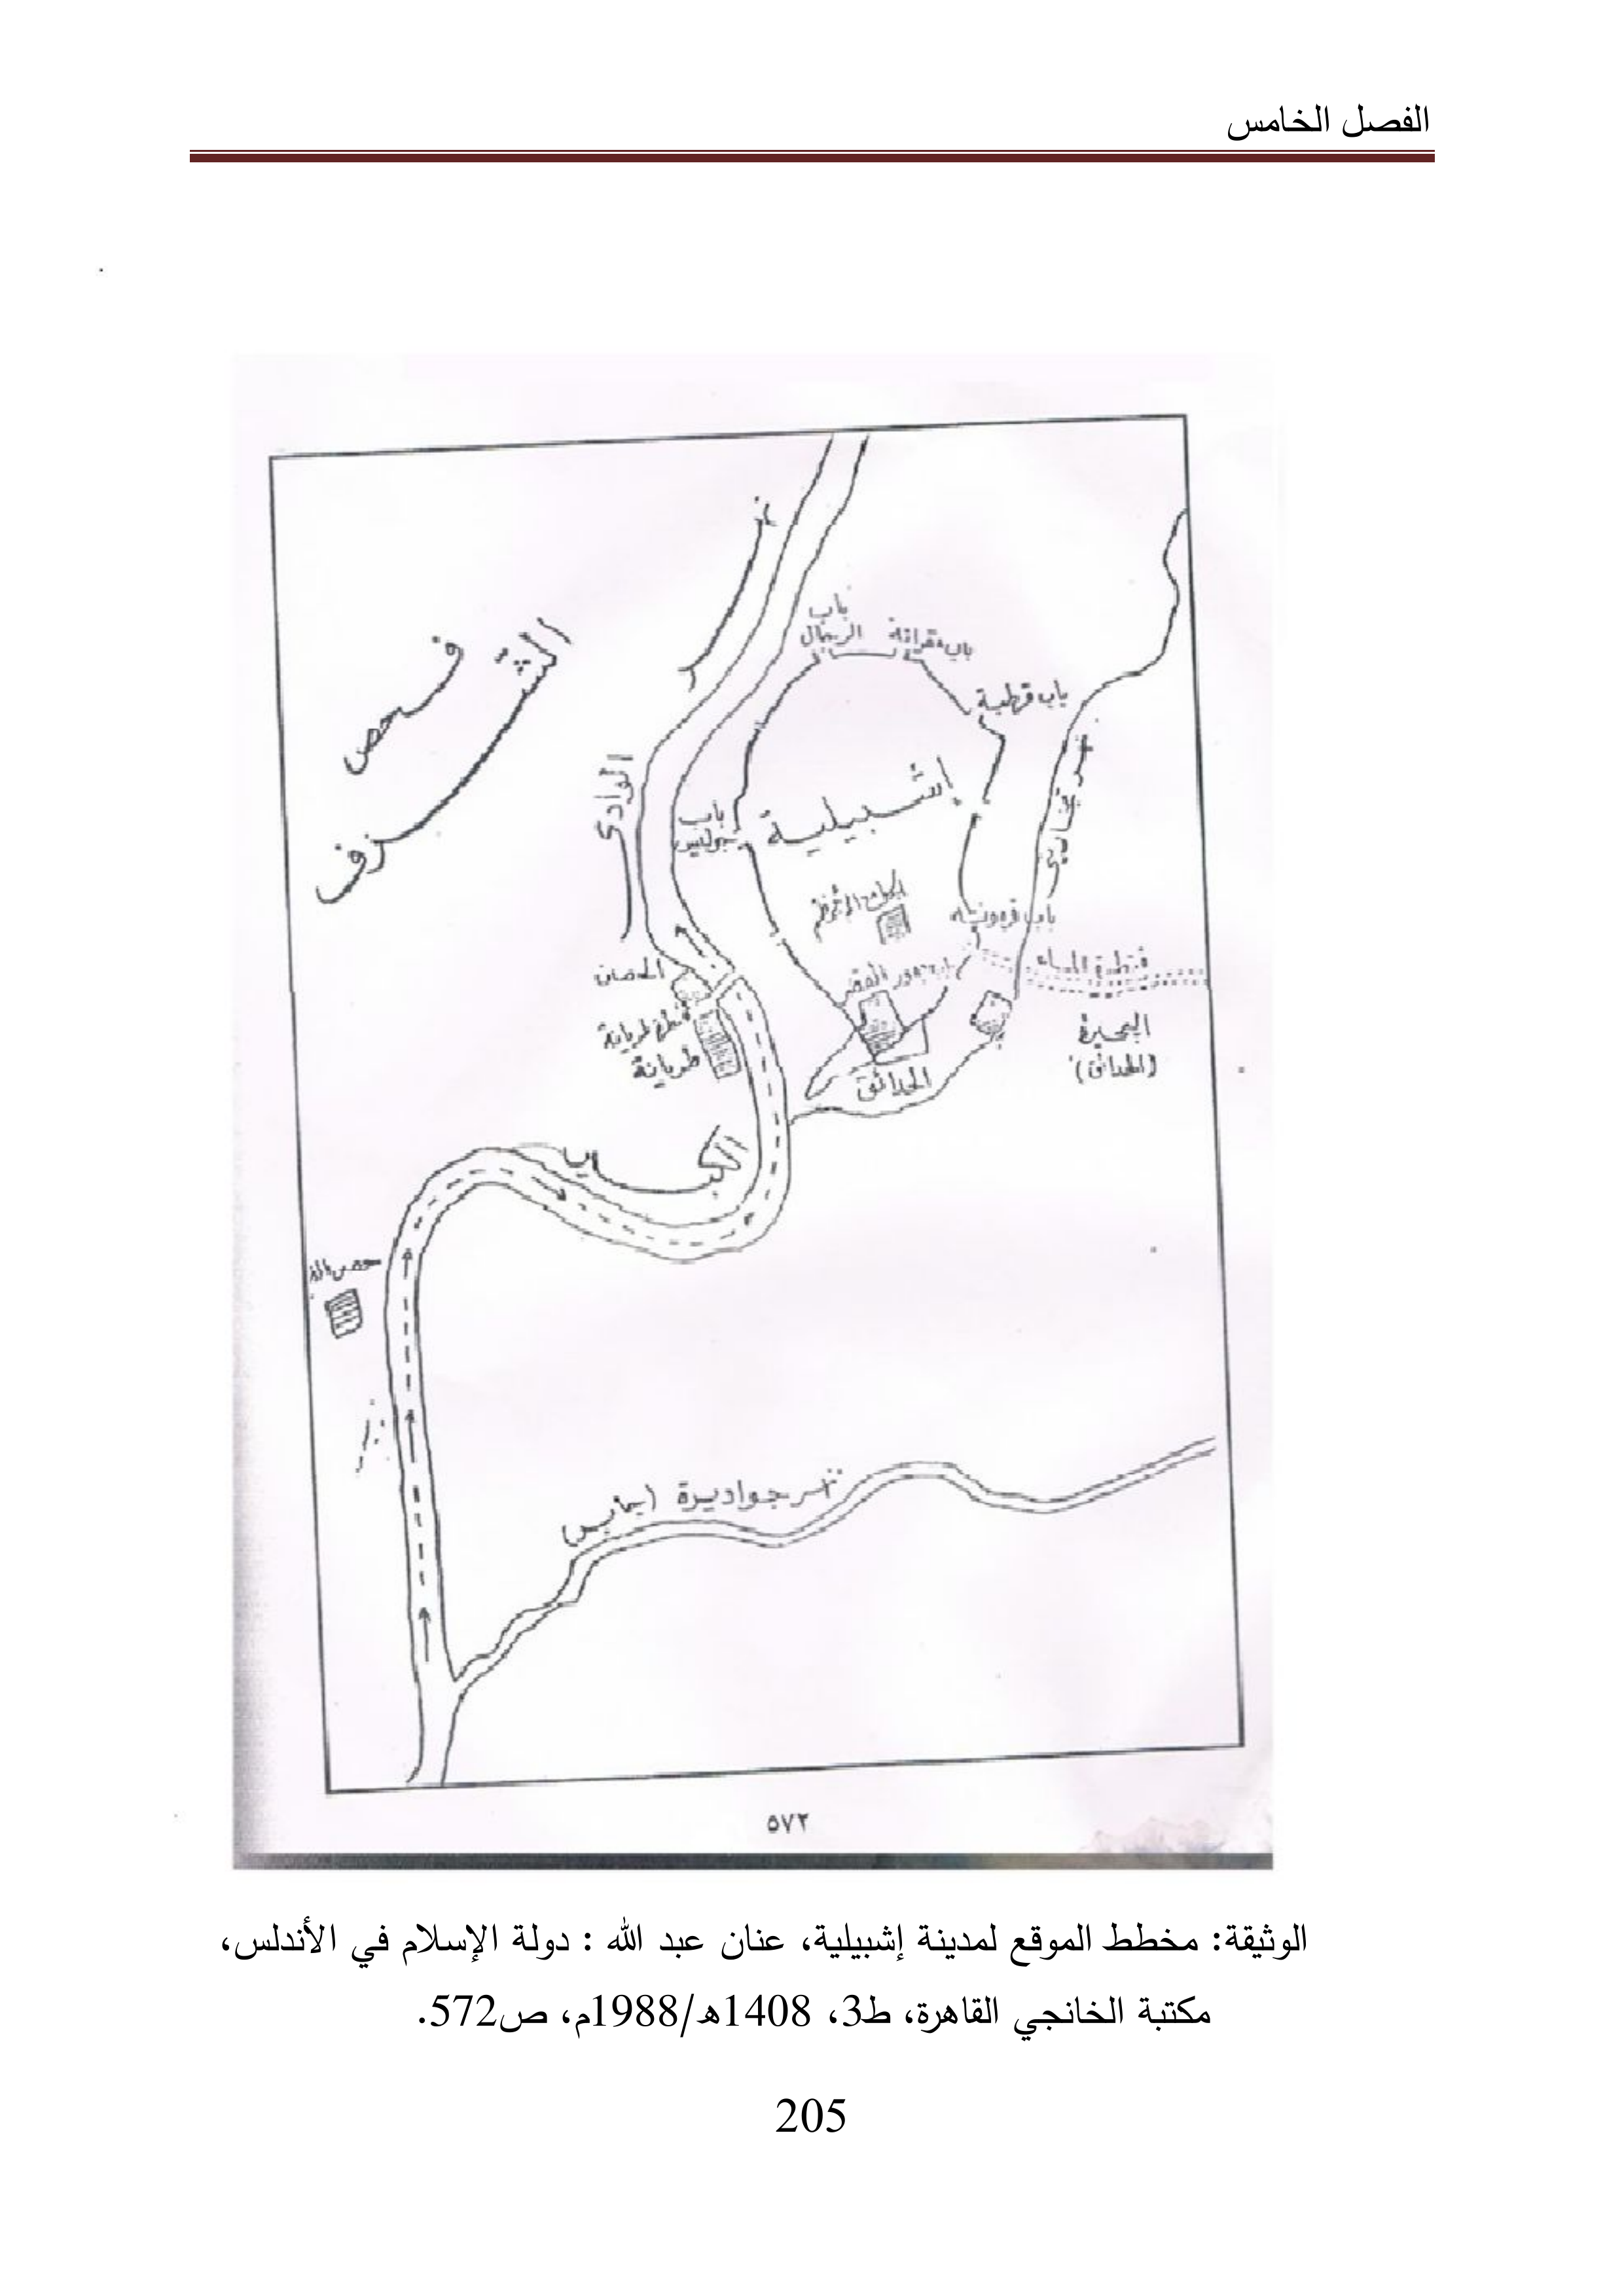 الفصل الخامس
فحص
الشرف
باب
الرجال
باب مقرانة
باب قرطبة
الوادي
باب
إشبيلية
باب قرمونية
قنطرة المياه
الحصان
طريانة
البحيرة
(الحدائق)
الحدائق
الكبير
نهر جواديرة
٥٧٢
الوثيقة: مخطط الموقع لمدينة إشبيلية، عنان عبد الله : دولة الإسلام في الأندلس،
مكتبة الخانجي القاهرة، ط3، 1408ه/1988م، ص572.
205